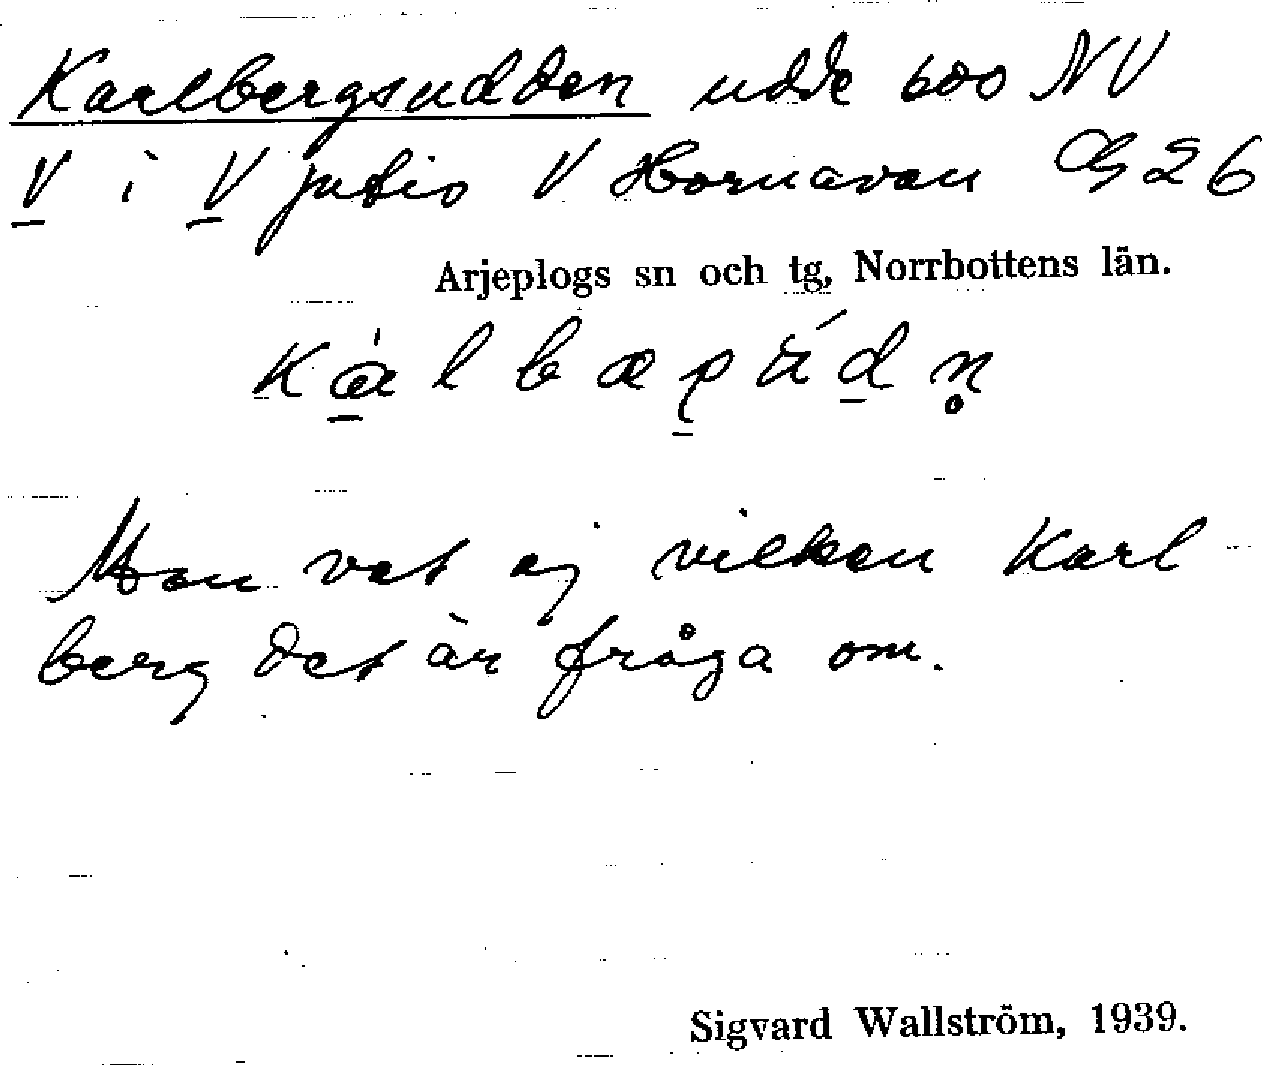 Karlbergsudden udde 600 NV
V i V Hornavan 26
Arjeplogs sn och tg, Norrbottens län.
Man vet ej vilken Karl
berg det är fråga om.
Sigvard Wallström, 1939.